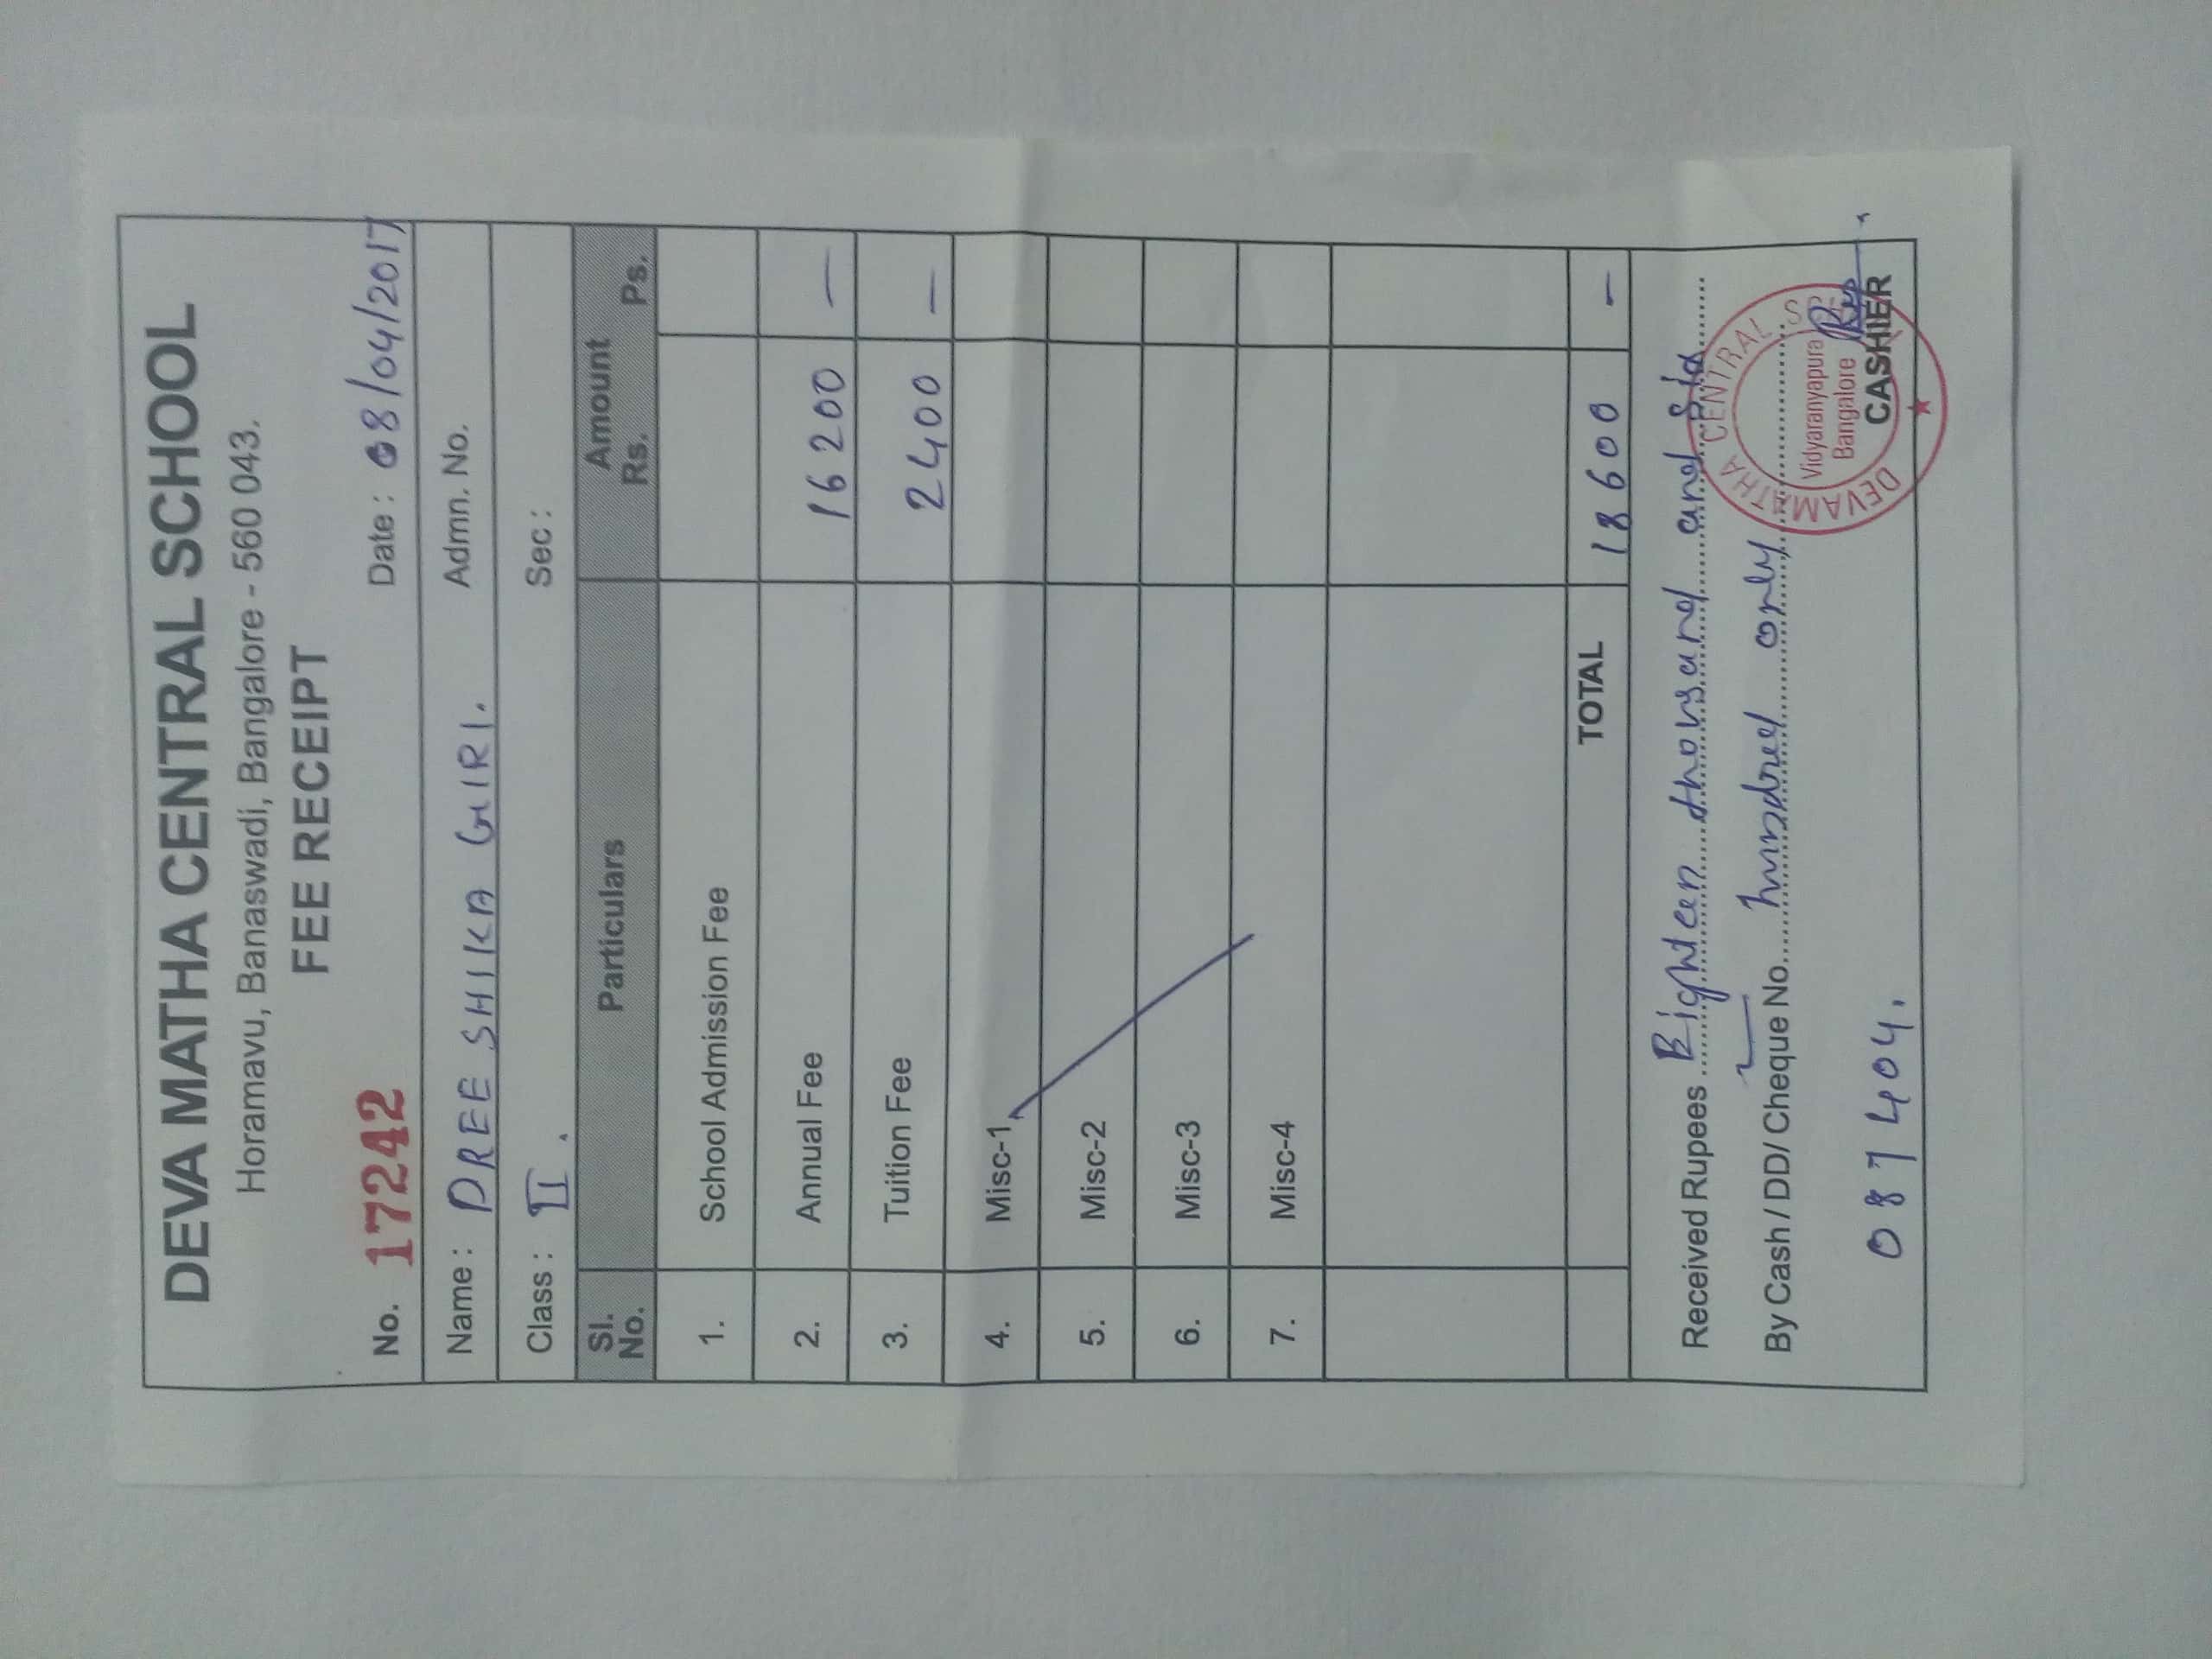 DEVA MATHA CENTRAL SCHOOL
Horamavu, Banaswadi, Bangalore - 560 043.
FEE RECEIPT
No. 17242 Date : 08/04/2017
Name : PREE SHIKA GIRI. Admn. No.
Class : II. Sec :
Sl. No. Particulars Amount Rs. Ps.
1. School Admission Fee
2. Annual Fee 16200 —
3. Tuition Fee 2400 —
4. Misc-1
5. Misc-2
6. Misc-3
7. Misc-4
TOTAL 18600 —
Received Rupees Eighteen thousand and six
By Cash / DD/ Cheque No. hundred only
087404.
DEVAMATHA CENTRAL
Vidyaranyapura
Bangalore
CASHIER